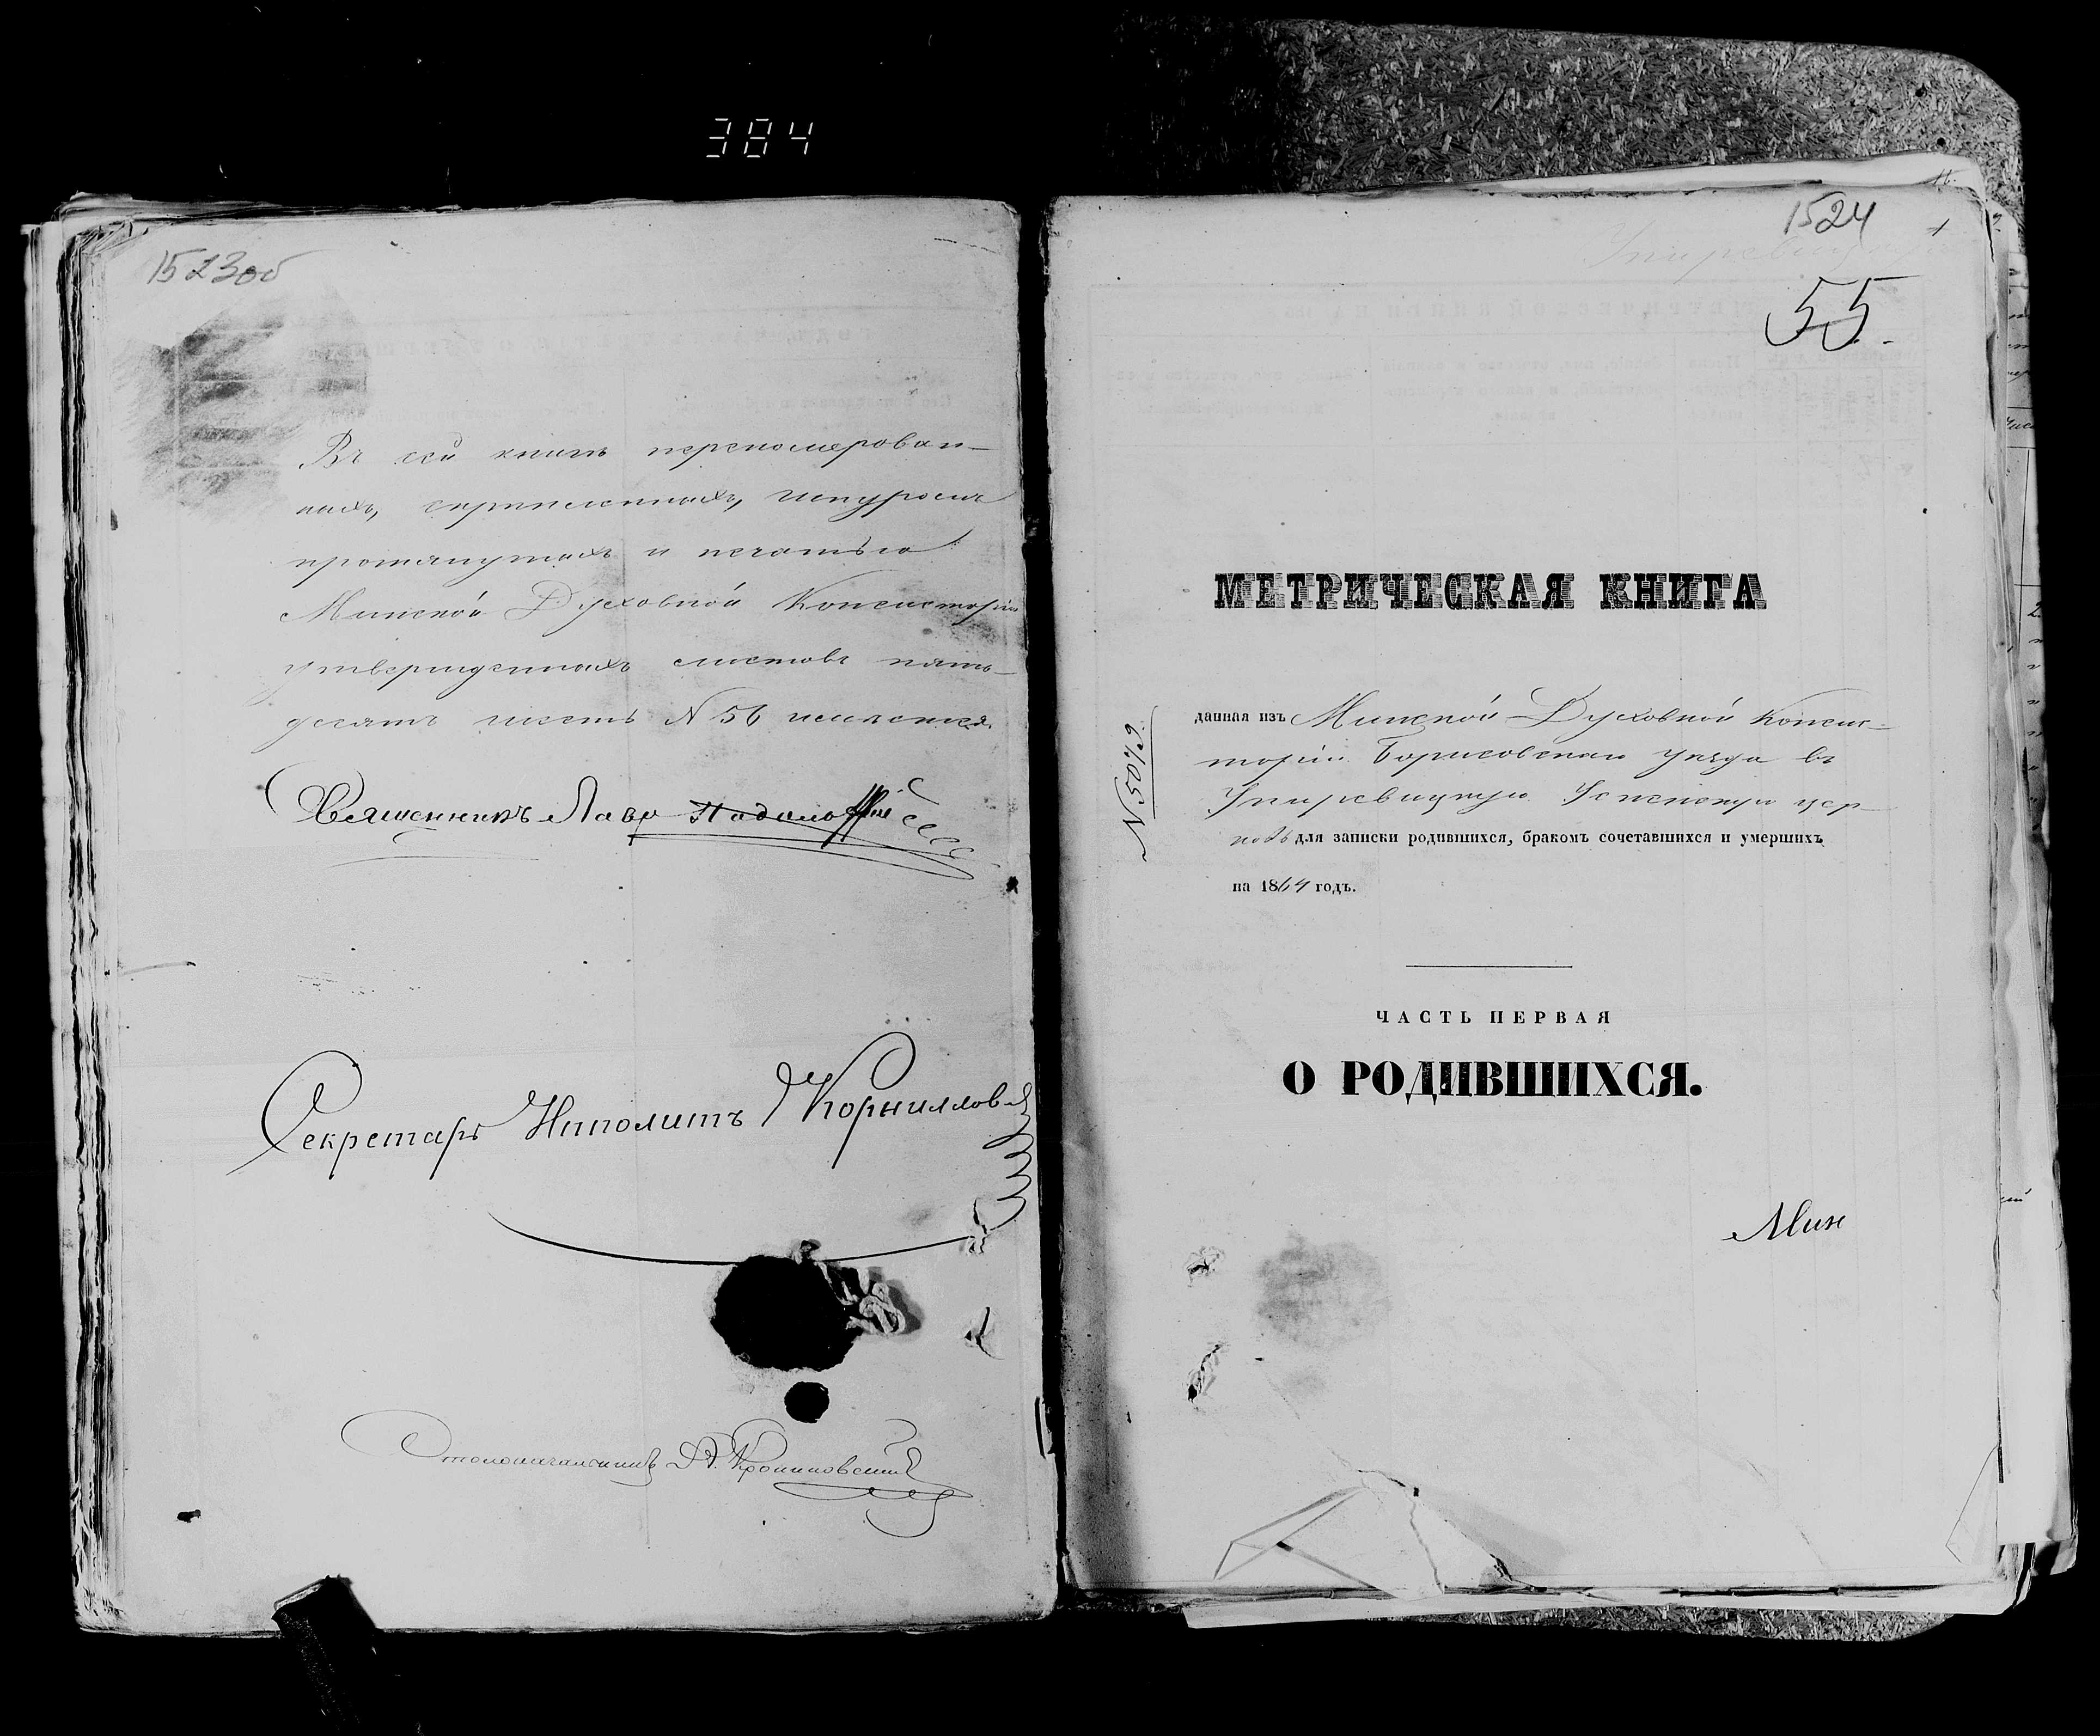 384
1523об
Въ сей книгѣ перенумерован-
ныхъ, скрѣпленныхъ, шнуромъ
протянутыхъ и печатью
Минской Духовной Консисторіи
утвержденныхъ листовъ пять-
десятъ шесть N 56
Священникъ Лавр
Секретарь Иполитъ Корниллов
Столоначальникъ
1524
55.
МЕТРИЧЕСКАЯ КНИГА
N 5079.
данная изъ Минской Духовной Консис-
торіи Борисовскаго уѣзда въ
Упиревицкую Успенскую цер-
ковь для записки родившихся, бракомъ сочетавшихся и умершихъ
на 1864 годъ.
ЧАСТЬ ПЕРВАЯ
О РОДИВШИХСЯ.
Мин